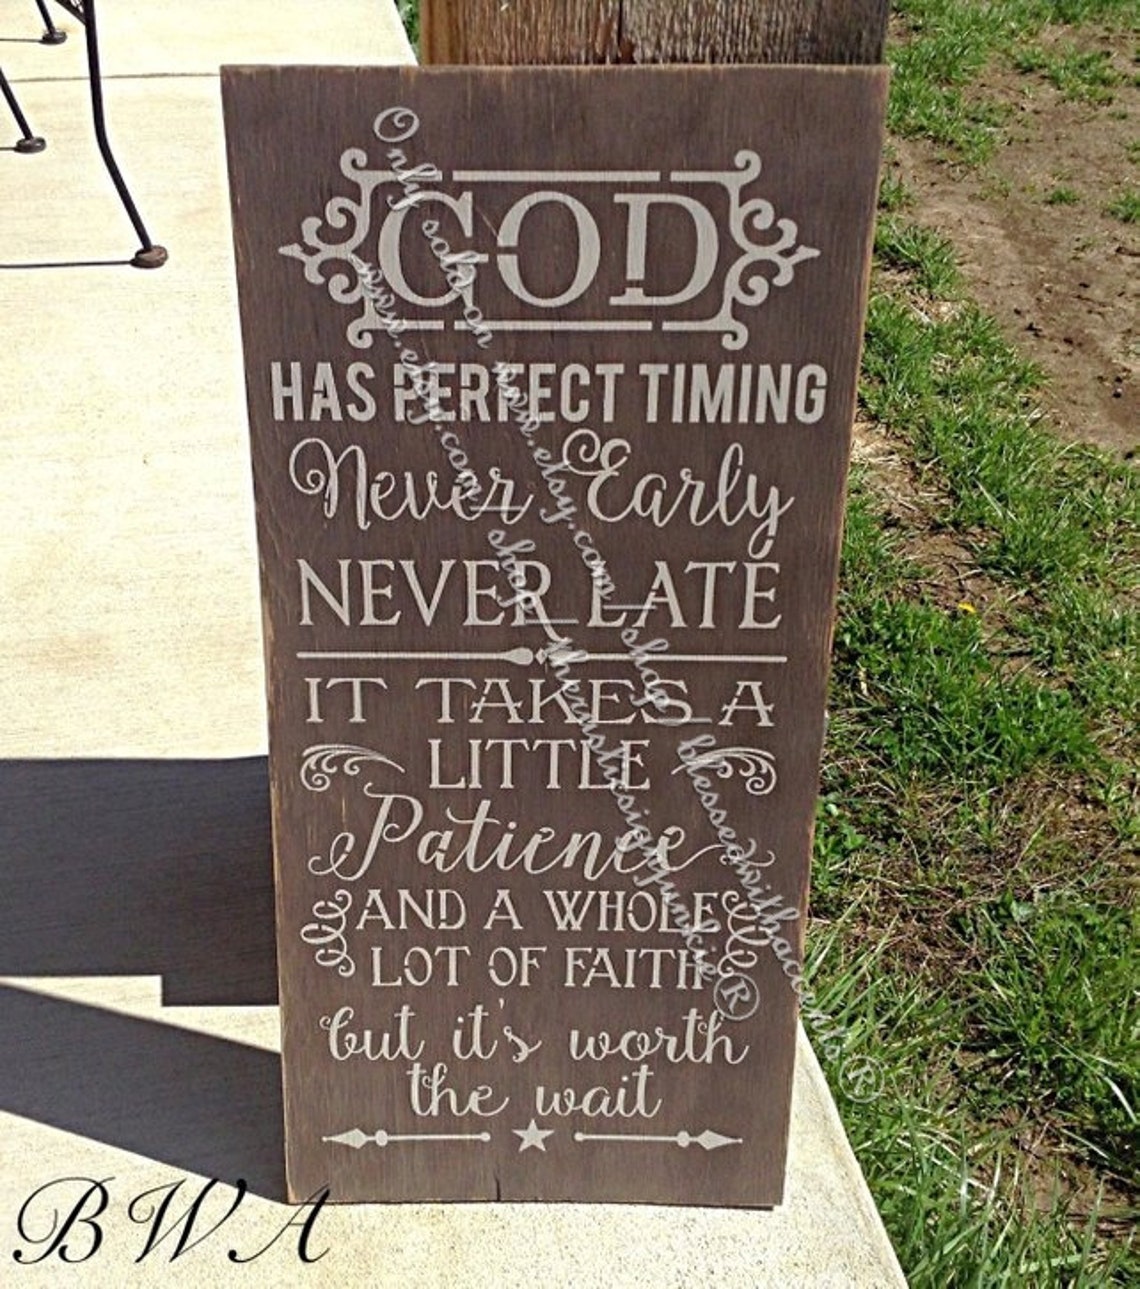 GOD
HAS PERFECT TIMING
Never Early
NEVER LATE
IT TAKES A
LITTLE
Patience
AND A WHOLE
LOT OF FAITH
but it's worth
the wait
Only sold on www.etsy.com/shop/blessedwithaccents®
www.etsy.com/shop/therusticsignjunkie®
BWA